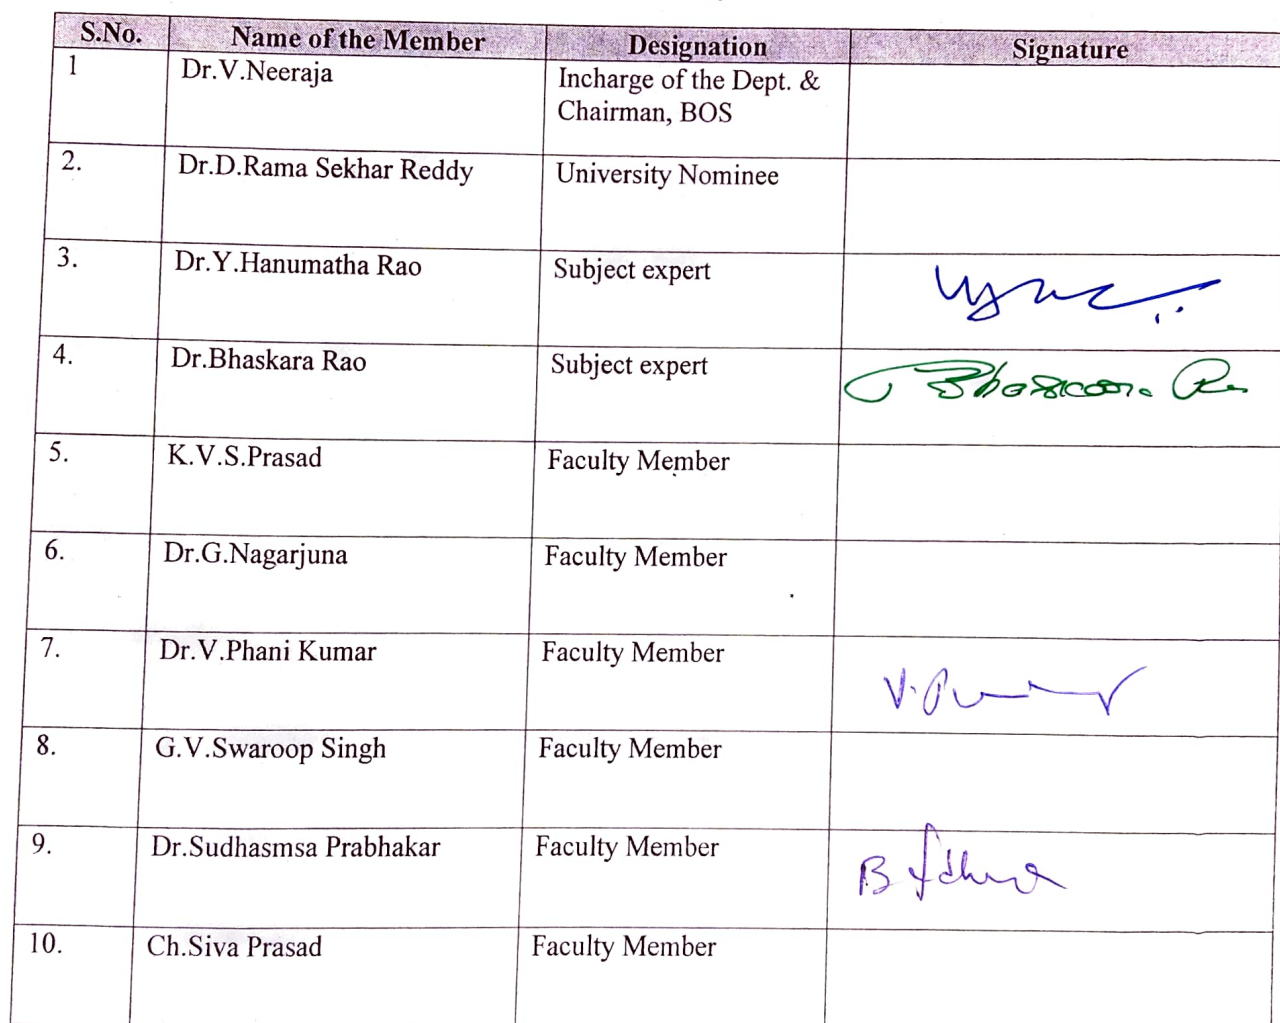 S.No. Name of the Member Designation Signature
1 Dr.V.Neeraja Incharge of the Dept. &
Chairman, BOS
2. Dr.D.Rama Sekhar Reddy University Nominee
3. Dr.Y.Hanumatha Rao Subject expert
4. Dr.Bhaskara Rao Subject expert
5. K.V.S.Prasad Faculty Member
6. Dr.G.Nagarjuna Faculty Member
7. Dr.V.Phani Kumar Faculty Member
8. G.V.Swaroop Singh Faculty Member
9. Dr.Sudhasmsa Prabhakar Faculty Member
10. Ch.Siva Prasad Faculty Member